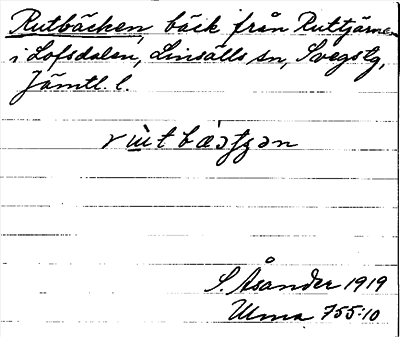 Rutbäcken, bäck från Ruttjärnen
i Lofsdalen, Linsälls sn, Svegs tg,
Jämtl. l.
S. Åsander 1919
Ulma 755:10